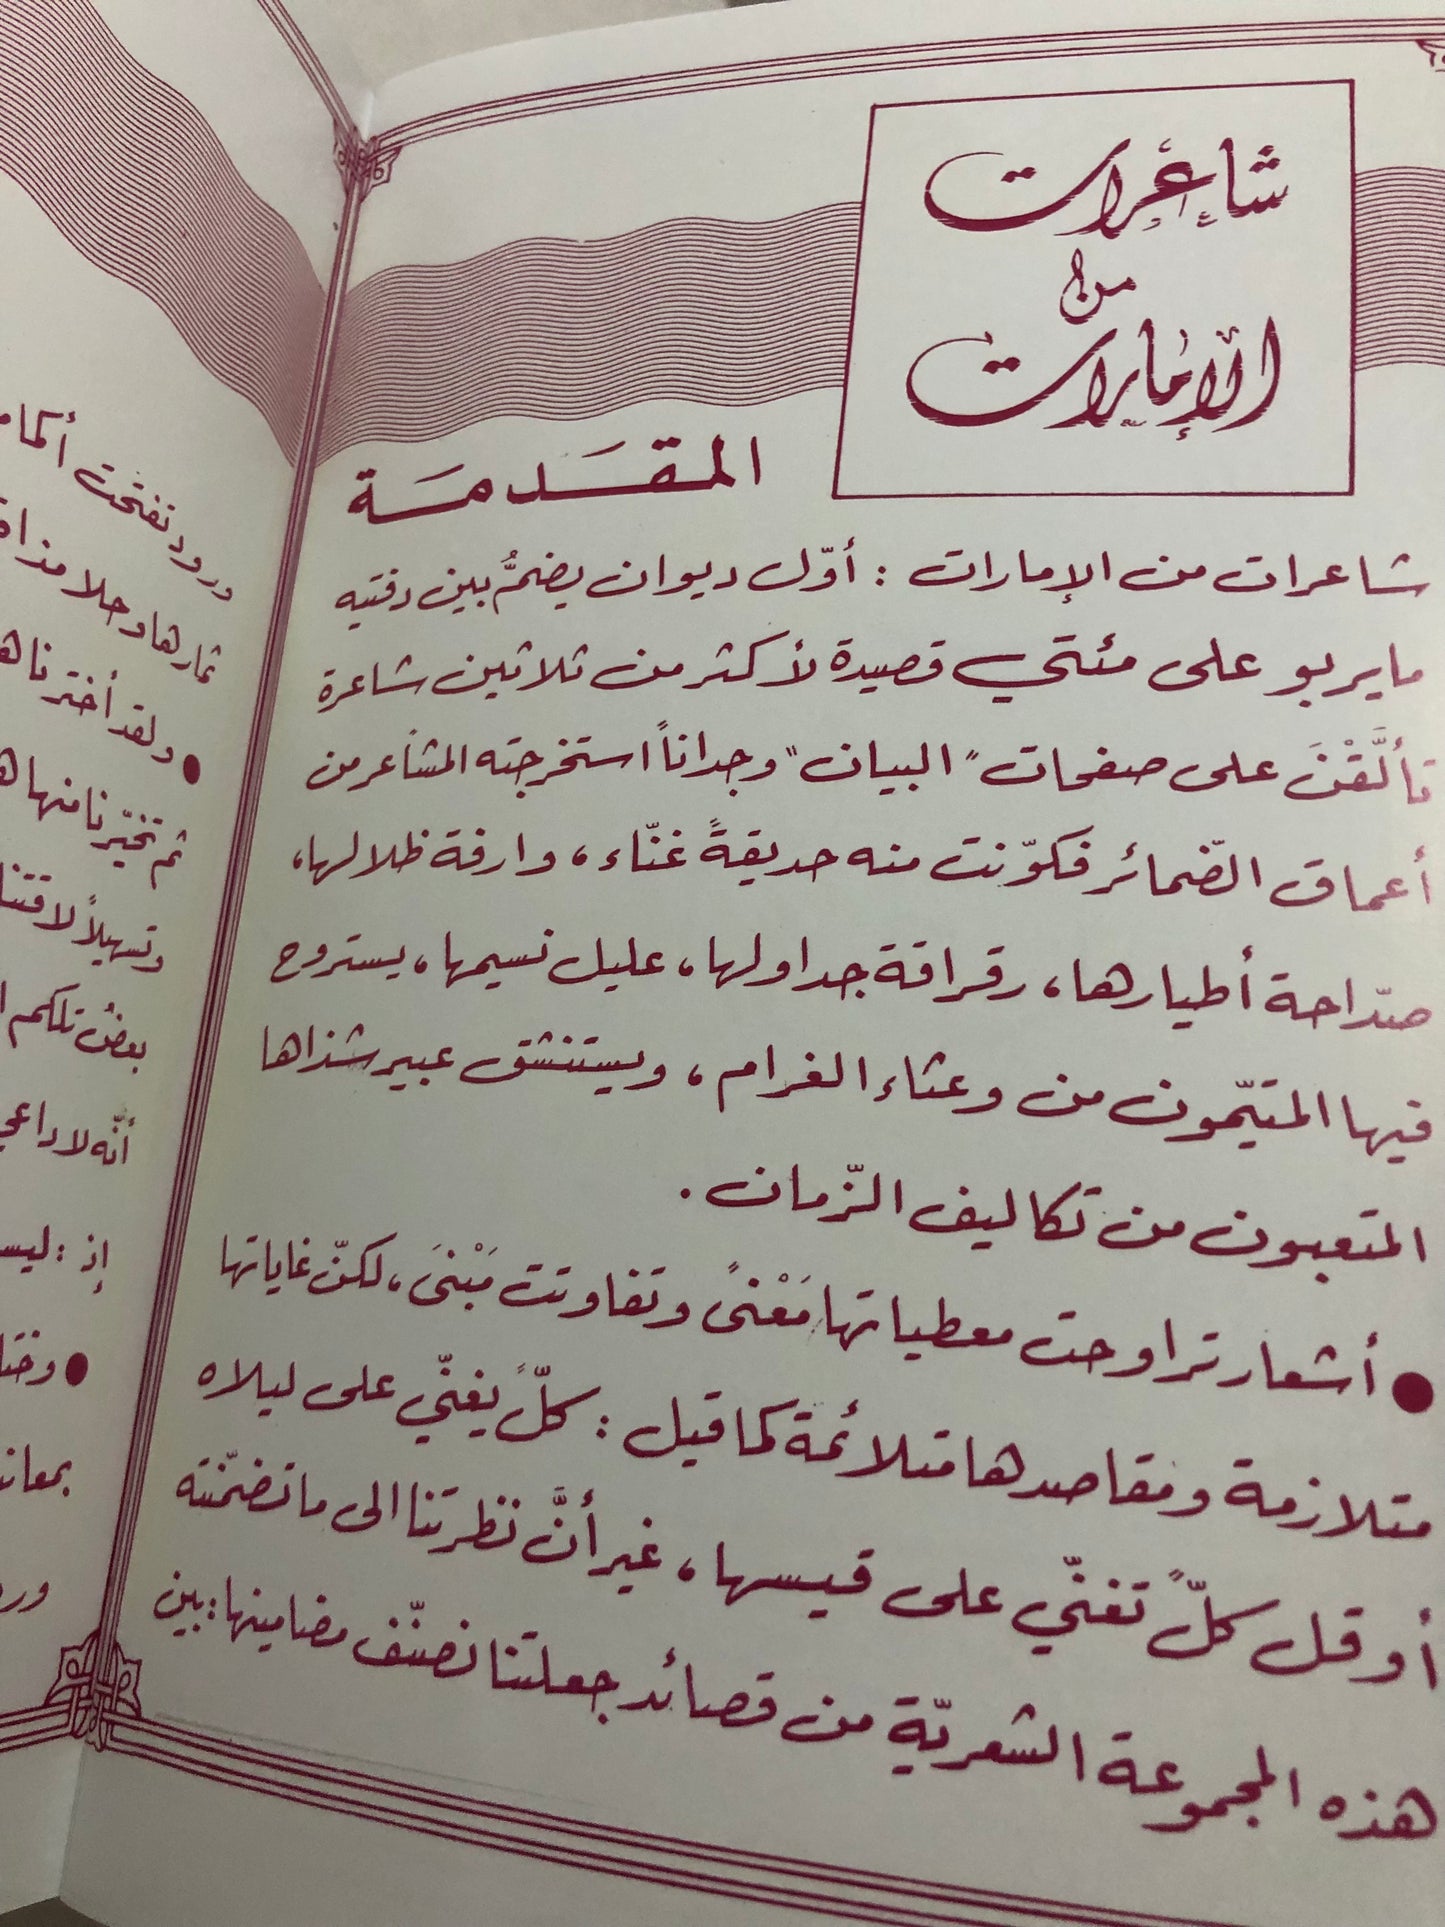 شاعرات
من
الإمارات
المقدمة
شاعرات من الإمارات : أوّل ديوان يضمُّ بين دفتيه
مايربو على مئتي قصيدة لأكثر من ثلاثين شاعرة
تألَّقْنَ على صفحات "البيان" وجداناً استخرجته المشاعر من
أعماق الضّمائر فكوّنت منه حديقةً غنّاء، وارفة ظلالها،
صدّاحة أطيارها، رقراقة جداولها، عليل نسيمها، يستروح
فيها المتيّمون من وعثاء الغرام، ويستنشق عبير شذاها
المتعبون من تكاليف الزّمان.
● أشعار تراوحت معطياتها مَعْنىً وتفاوتت مَبْنىَ، لكنّ غاياتها
متلازمة ومقاصدها متلائمة كما قيل : كلّ يغنّي على ليلاه
أو قل كلّ تغنّي على قيسها، غير أنَّ نظرتنا الى ما تضمّنته
هذه المجموعة الشعريّة من قصائد جعلتنا نصنّف مضامينها : بين
ورود تفتحت
ثمارها وحلا مذا
● ولقد أخترنا
ثم تخيّرنا منها
وتسهيلاً
بعضُ تلكم
أنّه لا داعي
إذ :